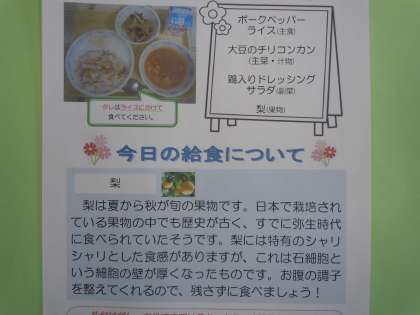 ポークペッパー
ライス(主食)
大豆のチリコンカン
(主菜・汁物)
鶏入りドレッシング
サラダ(副菜)
梨(果物)
タレはライスにかけて
食べてください。
今日の給食について
梨
梨は夏から秋が旬の果物です。日本で栽培され
ている果物の中でも歴史が古く、すでに弥生時代
に食べられていたそうです。梨には特有のシャリ
シャリとした食感がありますが、これは石細胞と
いう細胞の壁が厚くなったものです。お腹の調子
を整えてくれるので、残さずに食べましょう！